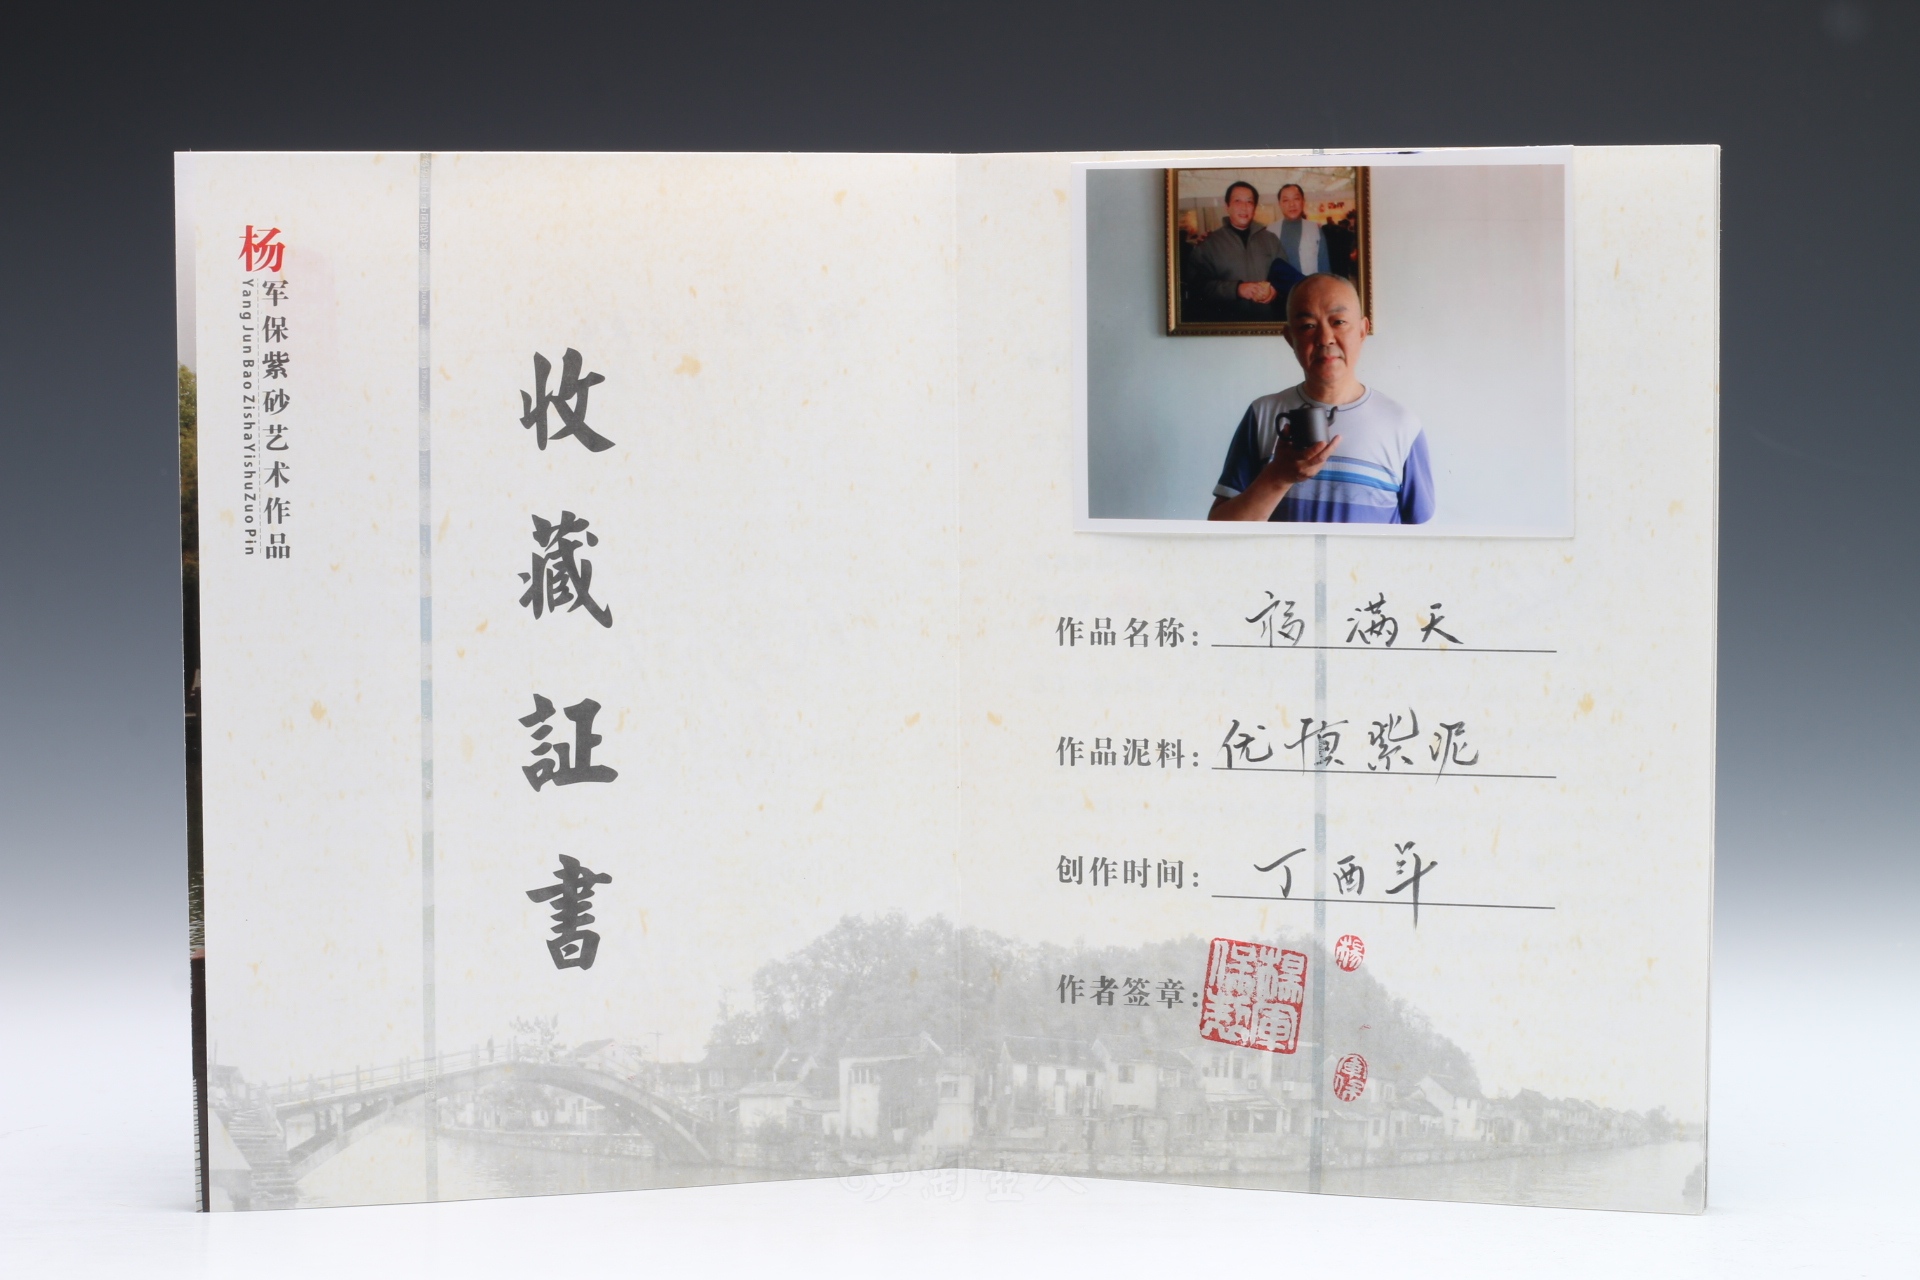 杨军保紫砂艺术作品
Yang Jun Bao ZishaYishuZuo Pin
收藏証書
作品名称: 福满天
作品泥料: 优质紫泥
创作时间: 丁酉年
作者签章:
楊軍保製
楊
軍保